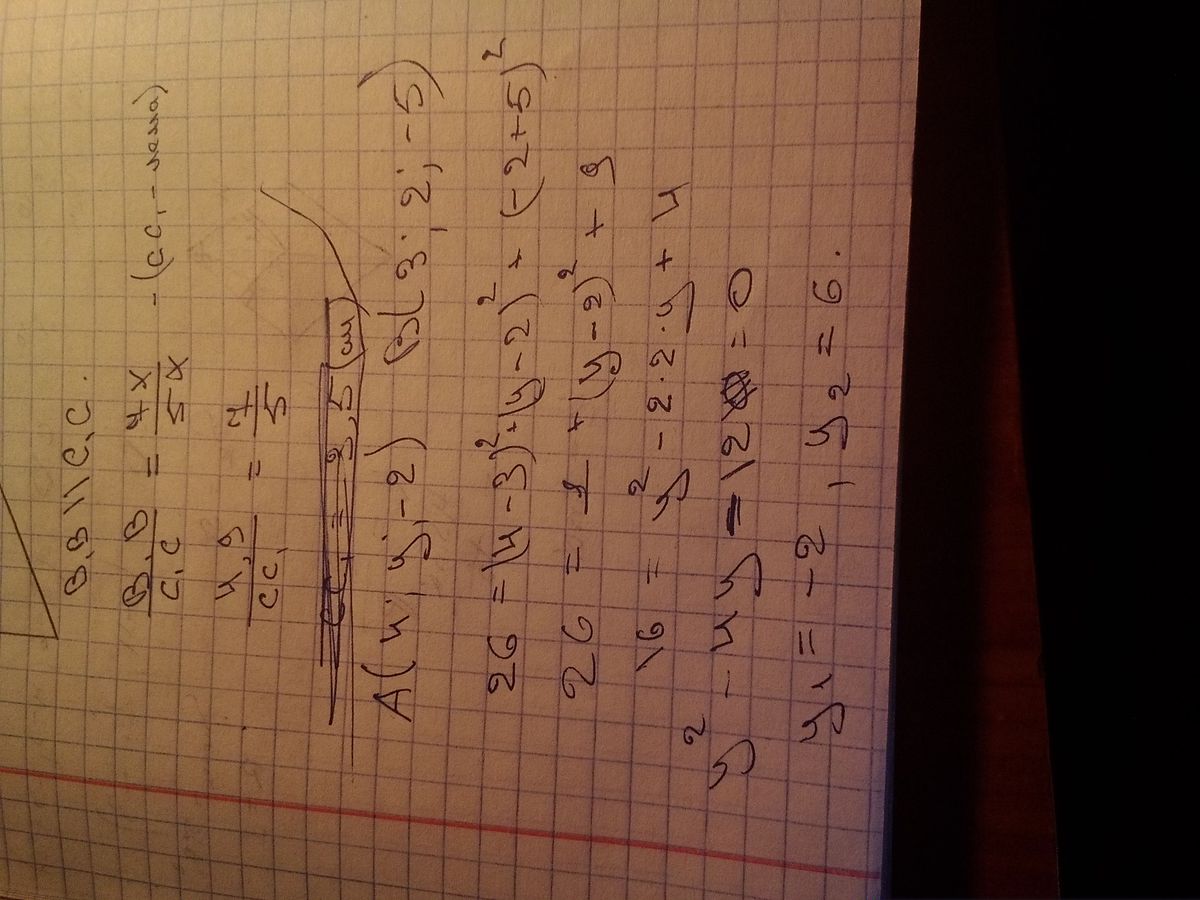 B₁B || C₁C.
B₁B / C₁C = 7x / 5x - (CC₁ -
4,9 / CC₁ = 7 / 5
CC₁ = 3,5 (см)
A(4; y; -2) B(3; 2; -5)
26 = (4-3)² + (y-2)² + (-2+5)²
26 = 1 + (y-2)² + 9
16 = y² - 2·2·y + 4
y² - 4y - 12 = 0
y₁ = -2, y₂ = 6.